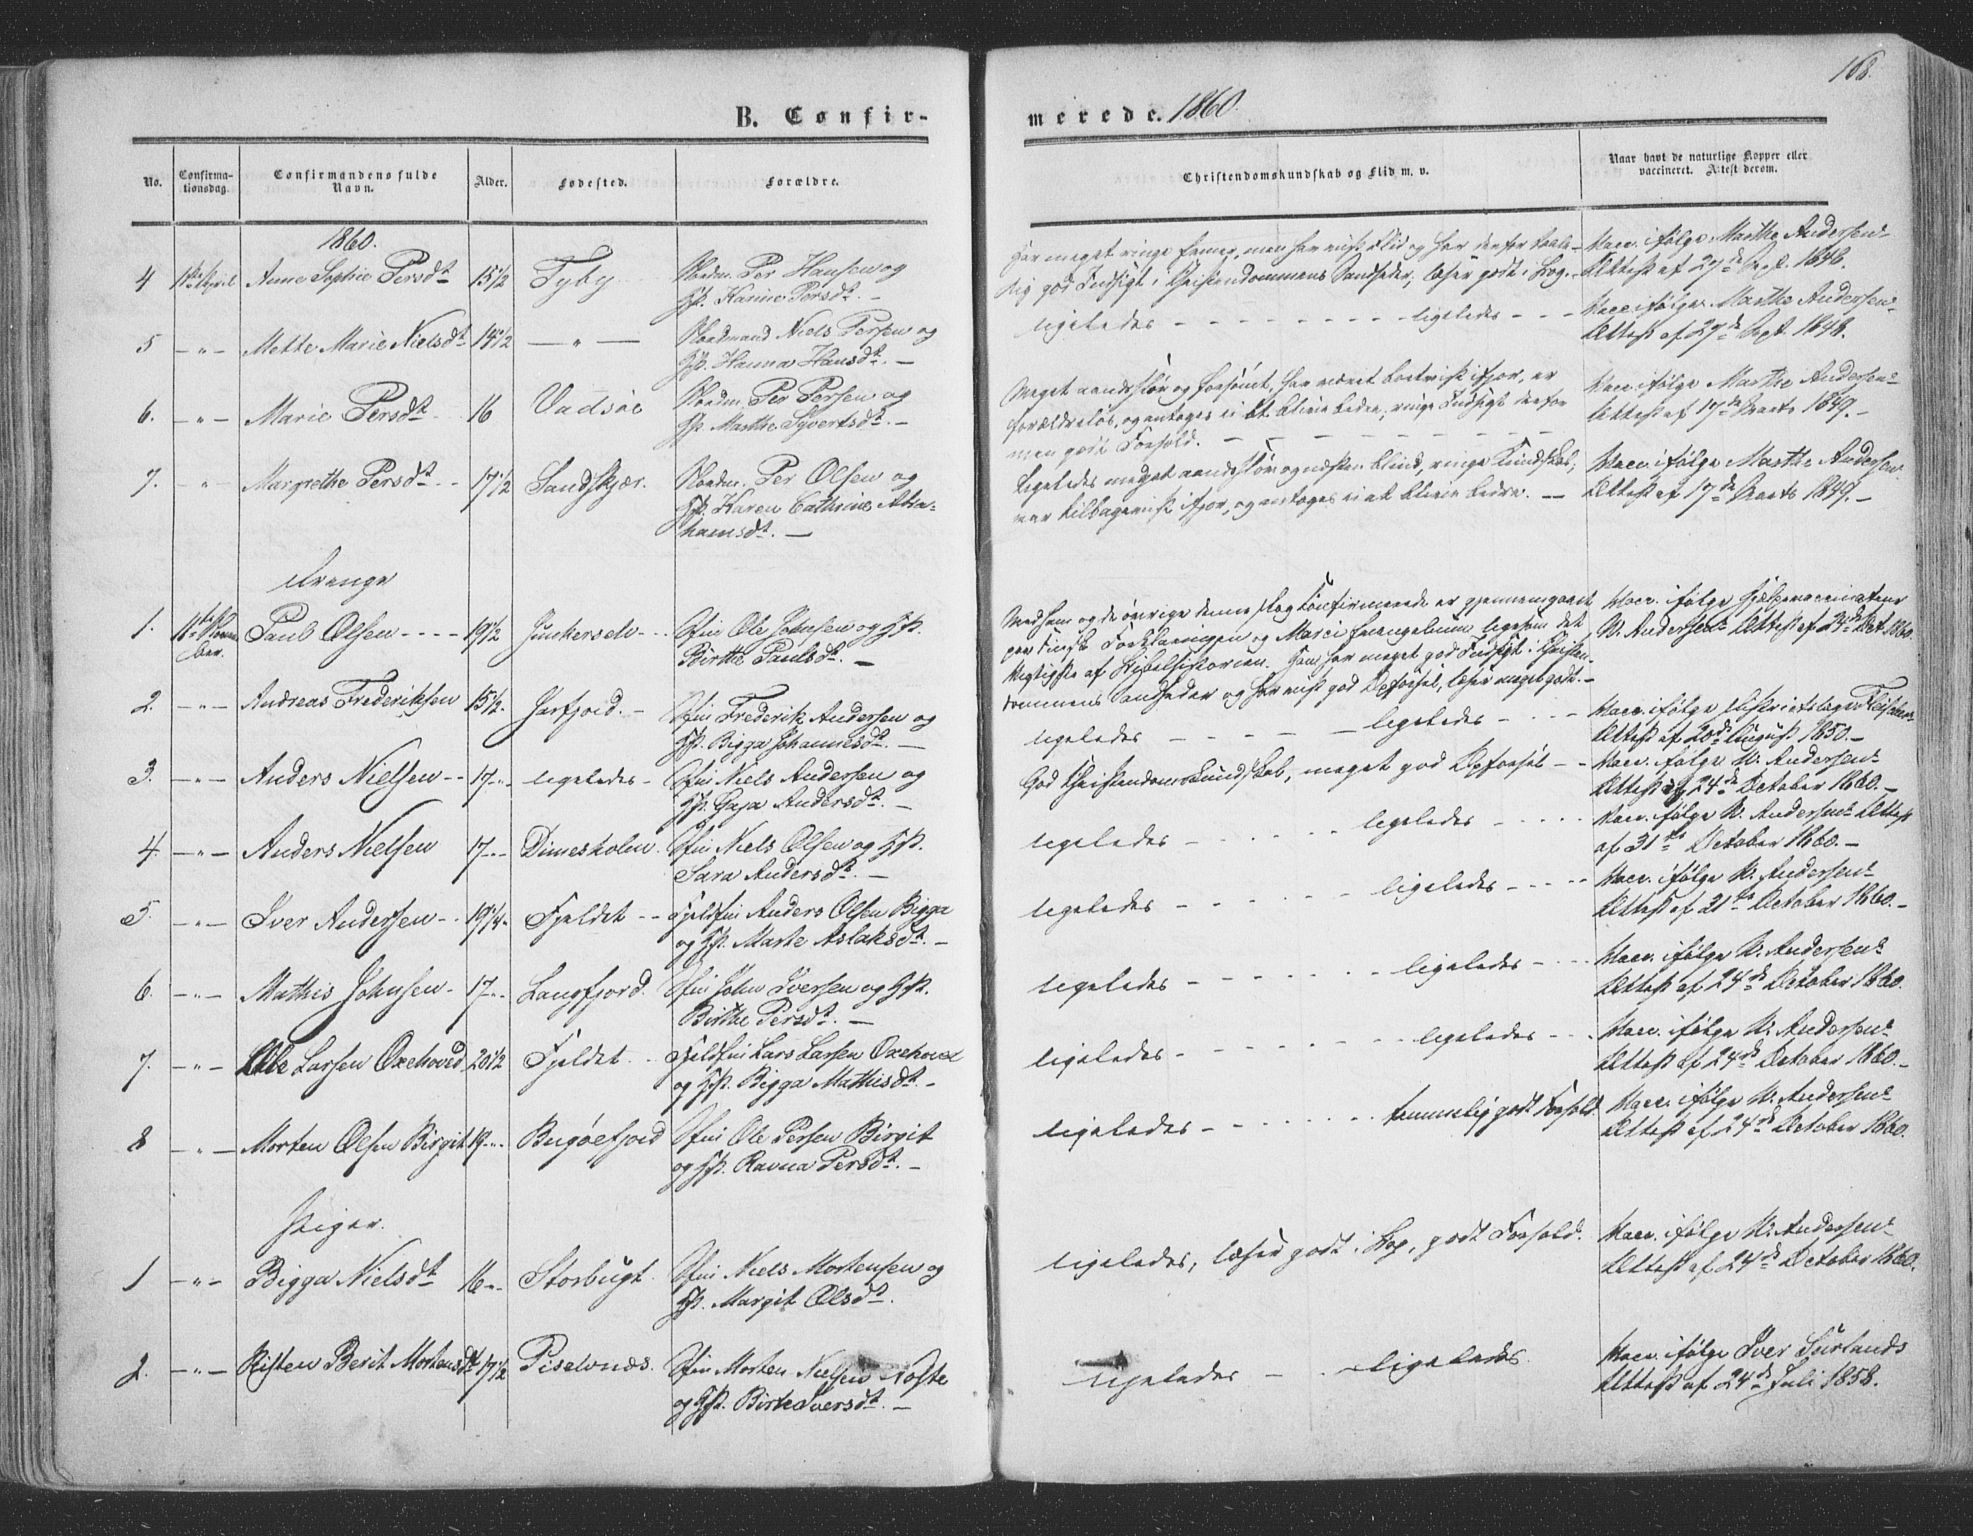 168.
B. Confir-
merede. 1860.
No.
Confirma-
tionsdag.
Confirmandens fulde
Navn.
Alder.
Fødested.
Forældre.
Christendomskundskab og Flid m. v.
Naar havt de naturlige Kopper eller
vaccineret. Attest derom.
1860.
4 1ste April Anne Sophie Persdt 15 1/2 Tyby Per Hansen og
Karine Persdt. —
Har meget ringe Evner, men har vist Flid og har derfor
god Indsigt i Christendommens Sandheder, læser godt i Bog.
Vacc. ifølge Marthe Andersens
Attest af 27de Sept. 1848.
5 — " — Mette Marie Nielsdt 14 1/2 — " — Niels Persen og
Hanna Hansdt. —
ligeledes — — — ligeledes — — —
Vacc. ifølge Marthe Andersens
Attest af 27de Sept. 1848.
6. — " — Marie Persdt. 16 Vadsöe Per Persen og
Marthe Syvertsdt. —
Meget aandssløv og forsömt, har været i fjor, er
forældreløs, og antages ei at blive bedre, ringe Indsigt derfor
men godt Forhold.
Vacc. ifølge Marthe Andersens
Attest af 17de Marts 1849. —
7. — " — Margrethe Persdt. 17 1/2 Sandskjær. Per Olsen og
Karen Cathrine Abra-
hamsdt. —
Ligeledes meget aandssløv og næsten blind, ringe Kundskab,
var tilbagevist ifjor, og antages ei at blive bedre. —
Vacc. ifølge Marthe Andersens
Attest af 17de Marts 1849. —
Drenge
1. 11te Novem-
ber. Paul Olsen 19 1/2 Junkerselv Ole Johnsen og
Birthe Paulsdt. —
Med ham og de øvrige denne Dag Confirmerede er gjennemgaaet
Forklaringen og Marci Evangelium ligesom det
vigtigste af Bibelhistorien. Han har meget god Indsigt i Christen-
dommens Sandheder og har vist god Opförsel, læser meget godt. —
Vacc. ifølge Hjælpevaccinateur
N. Andersens Attest af 24de Oct. 1860.
2. — " — Andreas Frederiksen 15 1/2. Jarfjord. — Frederik Andersen og
Bigga Johannesdt. —
ligeledes — — — — — ligeledes
Vacc. ifølge Districtslæge
Attest af 20de August 1850. —
3. — " — Anders Nielsen 17 ligeledes Niels Andersen og
Gaja Andersdt. —
God Christendomskundskab, meget god Opforsel
Vacc. ifølge N. Andersens
Attest af 24de October 1860. —
4. — " — Anders Nielsen 17 Dimesholm. Niels Olsen og
Sara Andersdt. —
ligeledes — ligeledes
Vacc. ifølge N. Andersens Attest
af 31te October 1860. —
5. — " — Iver Andersen 19 1/4 Fjeldet Fjeldfin Anders Olsen Bigga
og Marte Aslaksdt. —
ligeledes — ligeledes
Vacc. ifølge N. Andersens
Attest af 31te October 1860. —
6. — " — Mathis Johnsen 17 Langfjord. John Iversen og
Birthe Persdt. —
ligeledes — ligeledes
Vacc. ifølge N. Andersens
Attest af 24de October 1860.
7. — " — Ole Larsen Oxehoved 20 1/2 Fjeldet Fjeldfin Lars Larsen Oxehoved
og Bigga Mathisdt. —
ligeledes — ligeledes
Vacc. ifølge N. Andersens
Attest af 24de October 1860. —
8 — " — Morten Olsen Birgit 19 Bugöefjord Ole Persen Birgit
og Ravna Persdt. —
ligeledes — temmelig godt Forhold.
Vacc. ifølge N. Andersens
Attest af 24de October 1860.
Piger.
1 — " — Bigga Nielsdt 16 Storbugt Niels Mortensen og
Margit Olsdt.
ligeledes, læser godt i Bog, godt Forhold.
Vacc. ifølge N. Andersens
Attest af 24de October 1860.
2. — " — Risten Berit Mortensdt 17 1/2 Piselvnæs. Morten Nielsen Noste
og Birte Iversdt. —
ligeledes — ligeledes.
Vacc. ifølge Iver
Attest af 24de Juli 1858.